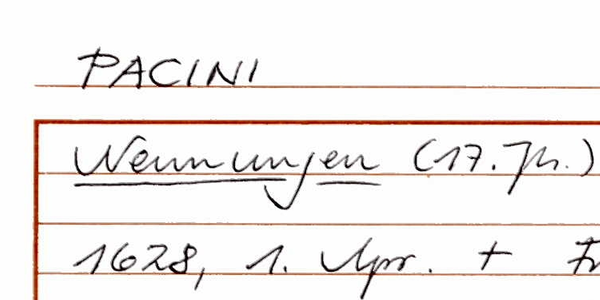 PACINI
Nennungen (17. Jh.)
1628, 1. Apr. +